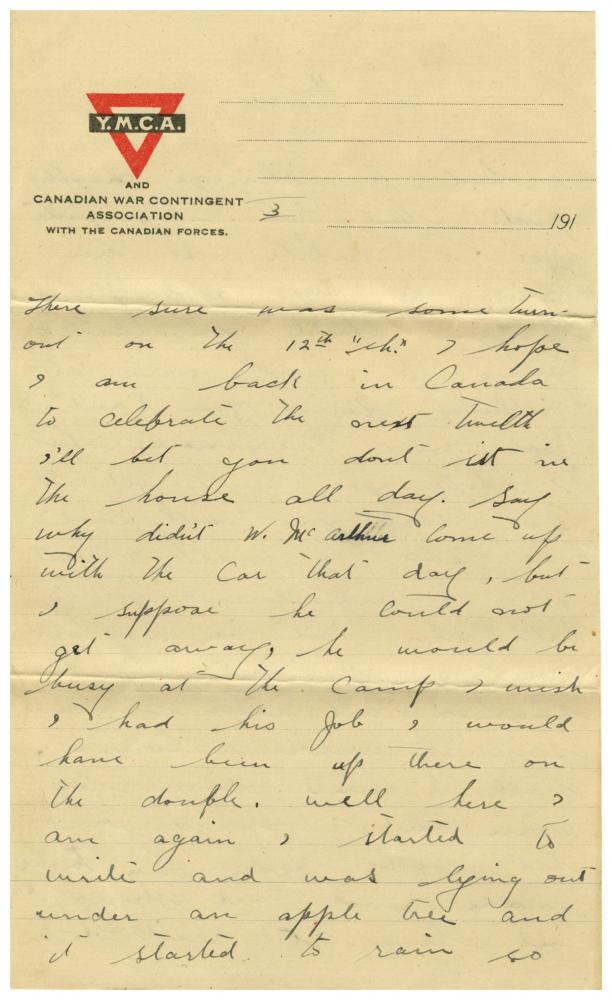 Y.M.C.A.
AND
CANADIAN WAR CONTINGENT
ASSOCIATION
WITH THE CANADIAN FORCES.
3
191
There sure was some turn-
out on the 12th "ch." I hope
I am back in Canada
to celebrate the next Twelth
I'll bet you dont sit in
the house all day. Say
why didn't W. McArthur come up
with the Car that day, but
I suppose he could not
get away, he would be
busy at the Camp I wish
I had his Job I would
have been up there on
the double. well here I
am again I started to
write and was lying out
under an apple tree and
it started to rain so